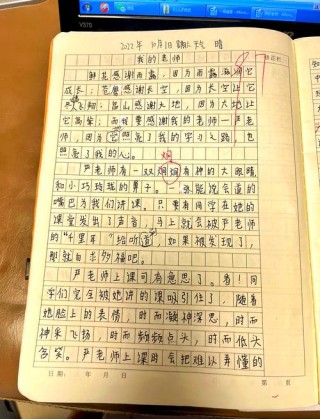 2022年10月1日 晴
我的老师
鲜花感谢雨露，因为雨露滋润它
成长；苍鹰感谢长空，因为长空让它
飞翔；高山感谢大地，因为大地让
它高耸；而我要感谢我的老师—严老
师，因为它照亮了我的学习之路，也
照亮了我的人生。
炯
严老师有一双炯炯有神的大眼睛
和小巧玲珑的鼻子。一张能说会道的
嘴巴为我们讲课。只要有同学在她的
课堂发出了声音，马上就会被严老师
的“千里耳”给听到，如果被发现了，
那就自求多福吧。
严老师上课可有意思了。看！同
学们完全被她讲的课吸引住了，随着
她脸上的表情，时而凝神深思，时而
神采飞扬，时而频频点头，时而低头
含笑。严老师上课时会把难以弄懂的
日期： 年 月 日
第 页